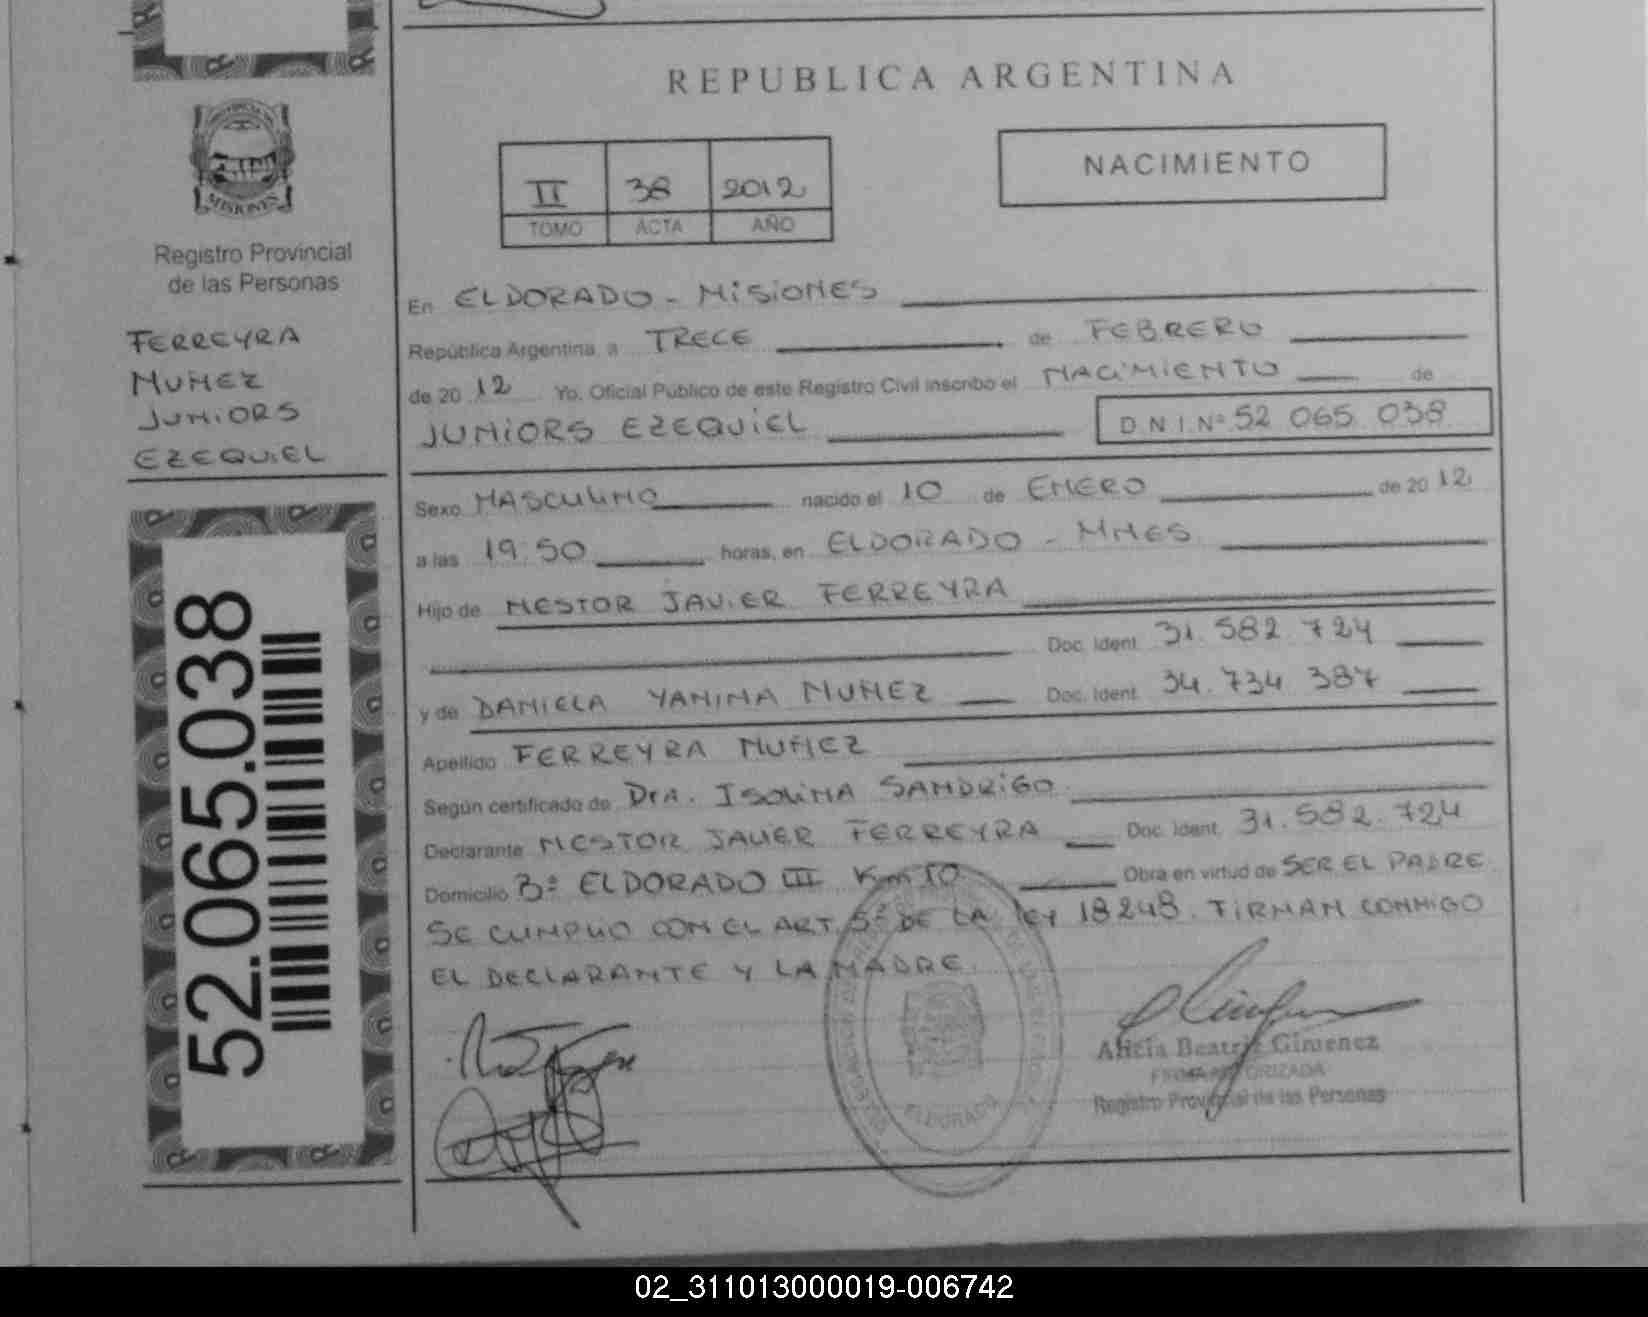 REPUBLICA ARGENTINA
NACIMIENTO
II 38 2012
TOMO ACTA AÑO
MISIONES
Registro Provincial
de las Personas
FERREYRA
NUÑEZ
JUNIORS
EZEQUIEL
52.065.038
En ELDORADO - MISIONES
República Argentina, a TRECE de FEBRERO
de 2012 Yo, Oficial Público de este Registro Civil inscribo el NACIMIENTO de
JUNIORS EZEQUIEL D.N.I. Nº 52 065 038
Sexo MASCULINO nacido el 10 de ENERO de 2012
a las 19:50 horas, en ELDORADO - MNES
Hijo de NESTOR JAVIER FERREYRA
Doc. Ident. 31.582.724
y de DANIELA YANINA NUÑEZ Doc. Ident. 34.734.387
Apellido FERREYRA NUÑEZ
Según certificado de DRA. ISOLINA SANDRIGO
Declarante NESTOR JAVIER FERREYRA Doc. Ident. 31.582.724
Domicilio Bº ELDORADO III Km 10 Obra en virtud de SER EL PADRE
SE CUMPLIO CON EL ART. 5º DE LA LEY 18248. FIRMAN CONMIGO
EL DECLARANTE Y LA MADRE.
Alicia Beatriz Gimenez
FIRMA AUTORIZADA
Registro Provincial de las Personas
ELDORADO
02_311013000019-006742